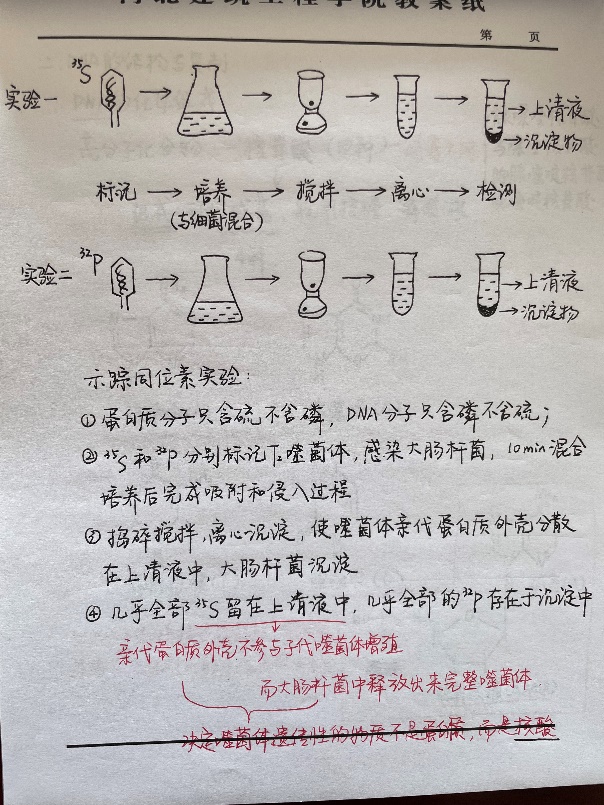 河北建筑工程学院教案纸
第 页
实验一 ³⁵S
→上清液
→沉淀物
标记 → 培养 → 搅拌 → 离心 → 检测
(与细菌混合)
实验二 ³²P
→上清液
→沉淀物
示踪同位素实验:
① 蛋白质分子只含硫不含磷, DNA分子只含磷不含硫;
② ³⁵S和³²P分别标记T₂噬菌体,感染大肠杆菌, 10min混合
培养后完成吸附和侵入过程
③ 捣碎搅拌,离心沉淀, 使噬菌体亲代蛋白质外壳分散
在上清液中, 大肠杆菌沉淀
④ 几乎全部³⁵S留在上清液中, 几乎全部的³²P存在于沉淀中
亲代蛋白质外壳不参与子代噬菌体增殖
而大肠杆菌中释放出来完整噬菌体
决定噬菌体遗传性的物质不是蛋白质, 而是核酸